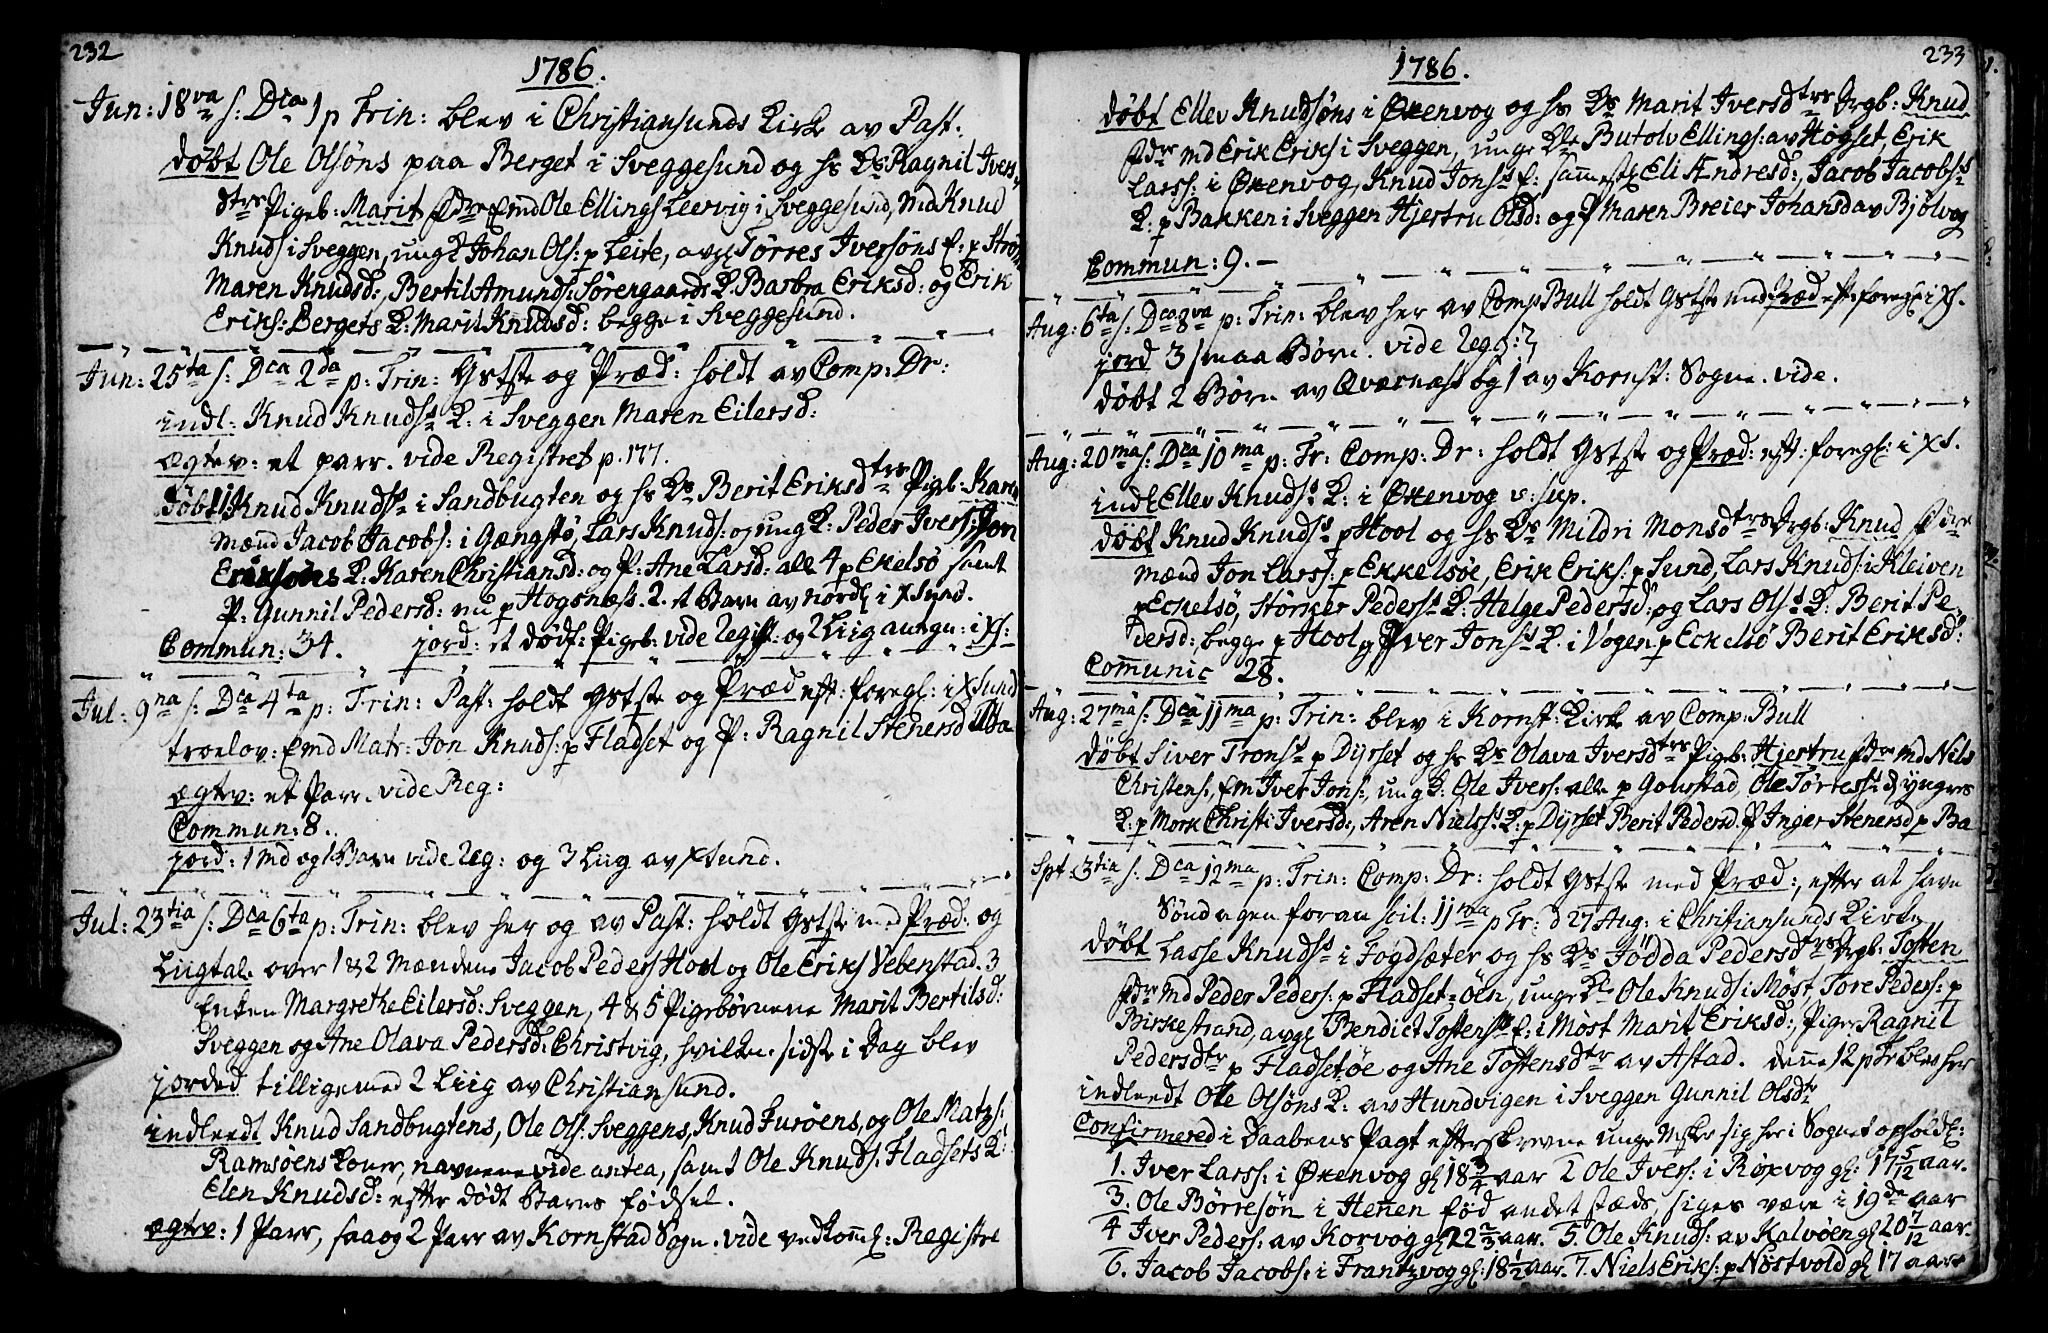 232
1786.
Jun: 18va s: Dca 1 p Trin: blev i Christiansunds Kirke av Past:
døbt Ole Olsøns paa Berget i Sveggesund og hs Ks Ragnil Ivers
dtrs Pigeb: Marit Fdre Emd Ole Ellings Leervig i Sveggesund, Md Knud
Knuds i Sveggen, ungk Johan Ols: p Leite, Tørres Iversøns E: p
Maren Knudsd:, Bertil Amunds: Sørengaards K: Barbra Eriksd: og Erik
Eriks: Bergets K: Marit Knudsd: begge i Sveggesund.
Jun: 25ta s: Dca 2da p: Trin: Gstste og Præd: holdt av Comp: Dr:
indl: Knud Knudss K: i Sveggen Maren Eilersd:
ægtev: et parr. vide Registret p. 177.
døbt Knud Knudss i Sandbugten og hs Ks Berit Eriksdtrs Pigeb: Karen
Mænd Jacob Jacobs: i Gængstø, Lars Knuds: og ung K: Peder Ivers: Jon
Eriksøns K: Karen Christiansd: og P: Ane Larsd: alle 4 p Ekelsø samt
P: Gunnil Pedersd: nu p Hogsnæss. 2. et Barn av Nordl i XSund.
Commun: 34. jord: et dødf: Pigeb: vide Regist: og 2 Liig aungn: i XS:
Jul: 9na s: Dca 4ta p: Trin: Past: holdt Gstste og Præd eft: foregl: i XSund
troelov: Emd Matr: Jon Knuds: p Fladset og P: Ragnil Stenersd
ægtev: et Parr. vide Reg:
Commun: 8.
jord: 1 Md og 1 Barn vide Reg: og 3 Liig av XSund.
Jul: 23tia s: Dca 6ta p: Trin: blev her og av Past: holdt Gstste med Præd: og
Liigtale over 1 & 2 Mændene Jacob Peders Hoel og Ole Eriks Vebenstad. 3
Enken Margrethe Eilersd: Sveggen, 4 & 5 Pigebørnene Marit Bertilsd:
Sveggen og Ane Olava Pedersd: Christvig, hvilken sidste i Dag blev
jorded tilligemed 2 Liig av Christiansund.
indleedt Knud Sandbugtens, Ole Ols: Sveggens, Knud Furøens, og Ole Matzs:
Ramsøens Koner, navnene vide antea, samt Ole Knuds: Fladsets K:
Elen Knudsd: efter dødt Barns fødsel.
ægtev: 1 Parr, saa og 2 Parr av Kornstad Sogn. vide vedkomml: Registre
233
1786.
døbt Ellev Knudsøns i Økenvog og hs Ks Marit Iversdtrs Drgb: Knud
Fdre Md Erik Eriks i Sveggen, unge Kle Butolv Ellings: av Høgset, Erik
Larss: i Økenvog, Knud Jonss E: sammestz Eli Andresd:, Jacob Jacobss
K: p Bakken i Sveggen Hjertru Olsd: og P Maren Breier Johansd av Bjølvog
Commun: 9.
Aug: 6ta s: Dca 8va p: Trin: blev her av Comp Bull holdt Gstste med Præd eft: foregl: i XS.
jord 3 smaa Børn. vide Reg:
døbt 2 Børn av Qværnæss og 1 av Kornst: Sogne. vide.
Aug: 20ma s: Dca 10ma p: Tr: Comp: Dr: holdt Gstste og Præd: eft: foregl: i XS.
indl Ellev Knudss K: i Økenvog v: sup.
døbt Knud Knudss p Hool og hs Ks Mildri Monsdtrs Drgb: Knud Fdre
Mænd Jon Larss: p Ekkelsøe, Erik Eriks: p Sund, Lars Knuds: i Kleiven
p Eckelsö, Störker Pederss K: Helge Pedersd: og Lars Olss K: Berit Pe-
dersd: begge p Hool og Iver Jonss K. i Vogen p Eckelsö Berit Eriksd:
Communic 28.
Aug: 27ma s: Dca 11ma p: Trin: blev i Kornst: Kirke av Comp: Bull
døbt Siver Tronss p Dyrset og hs Ks Olava Iversdtrs Pigeb: Hjertru Fdre Md Nils
Christens, Em Iver Jons:, ungk: Ole Ivers: alle p Gourstad, Ole Tørress: d yngres
K: p Mork Christi Iversd:, Aren Nielss: K: p Dyrset Berit Pedersd. P Inger Stenersd p
Spt: 3tia s: Dca 12ma p: Trin: Comp: Dr: holdt Gstste med Præd:, efter at have
Søndagen foran scil: 11ma p Tr: d 27 Aug: i Christiansunds Kirke
døbt Lasse Knudss i Fogdsæter og hs Ks Jødda Pedersdtrs Drgb: Tosten
Fdre Md Peder Peders: p Fladset-øen, unge Kle Ole Knuds i Møst, Tore Peders: p
Birkestrand, Bendict Tostenss E: i Møst Marit Eriksd:, Piger Ragnil
Pedersdtr p Fladsetøe og Ane Tostensdtr av Astad. denne 12 p Tr blev her
indleedt Ole Olsøns K: av Hundvigen i Sveggen Gunnil Olsdtr
Confirmered i Daabens Pagt efterskrevne unge Mskr sig her i Sognet opholdl:
1. Iver Larss: i Økenvog gl 18 3/4 aar 2 Ole Ivers: i Røxvog gl: 17 5/12 aar.
3. Ole Børresøn i Henen fød andet stæds, siges være i 19de aar
4 Iver Peders: av Korvog gl 22 2/3 aar. 5. Ole Knuds: av Kalvøen gl 20 7/12 aar.
6. Jacob Jacobs: i Frantzvog gl: 18 1/2 aar. 7. Niels Eriks: p Nøstvold gl 17 aar